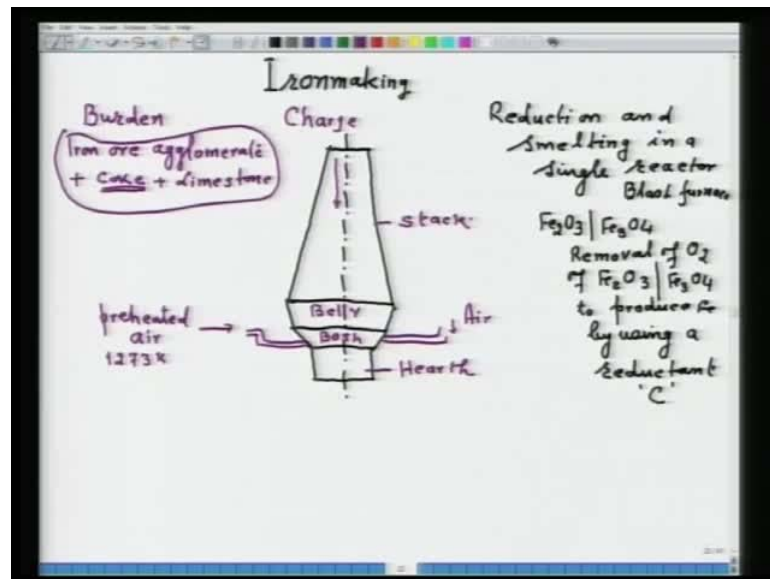 Ironmaking
Burden
Iron ore agglomerate
+ Coke + Limestone
Charge
stack
Belly
Bosh
Hearth
preheated
air
1273K
Air
Reduction and
smelting in a
single reactor
Blast furnace
Fe2O3 | Fe3O4
Removal of O2
of Fe2O3 | Fe3O4
to produce Fe
by using a
reductant
'C'